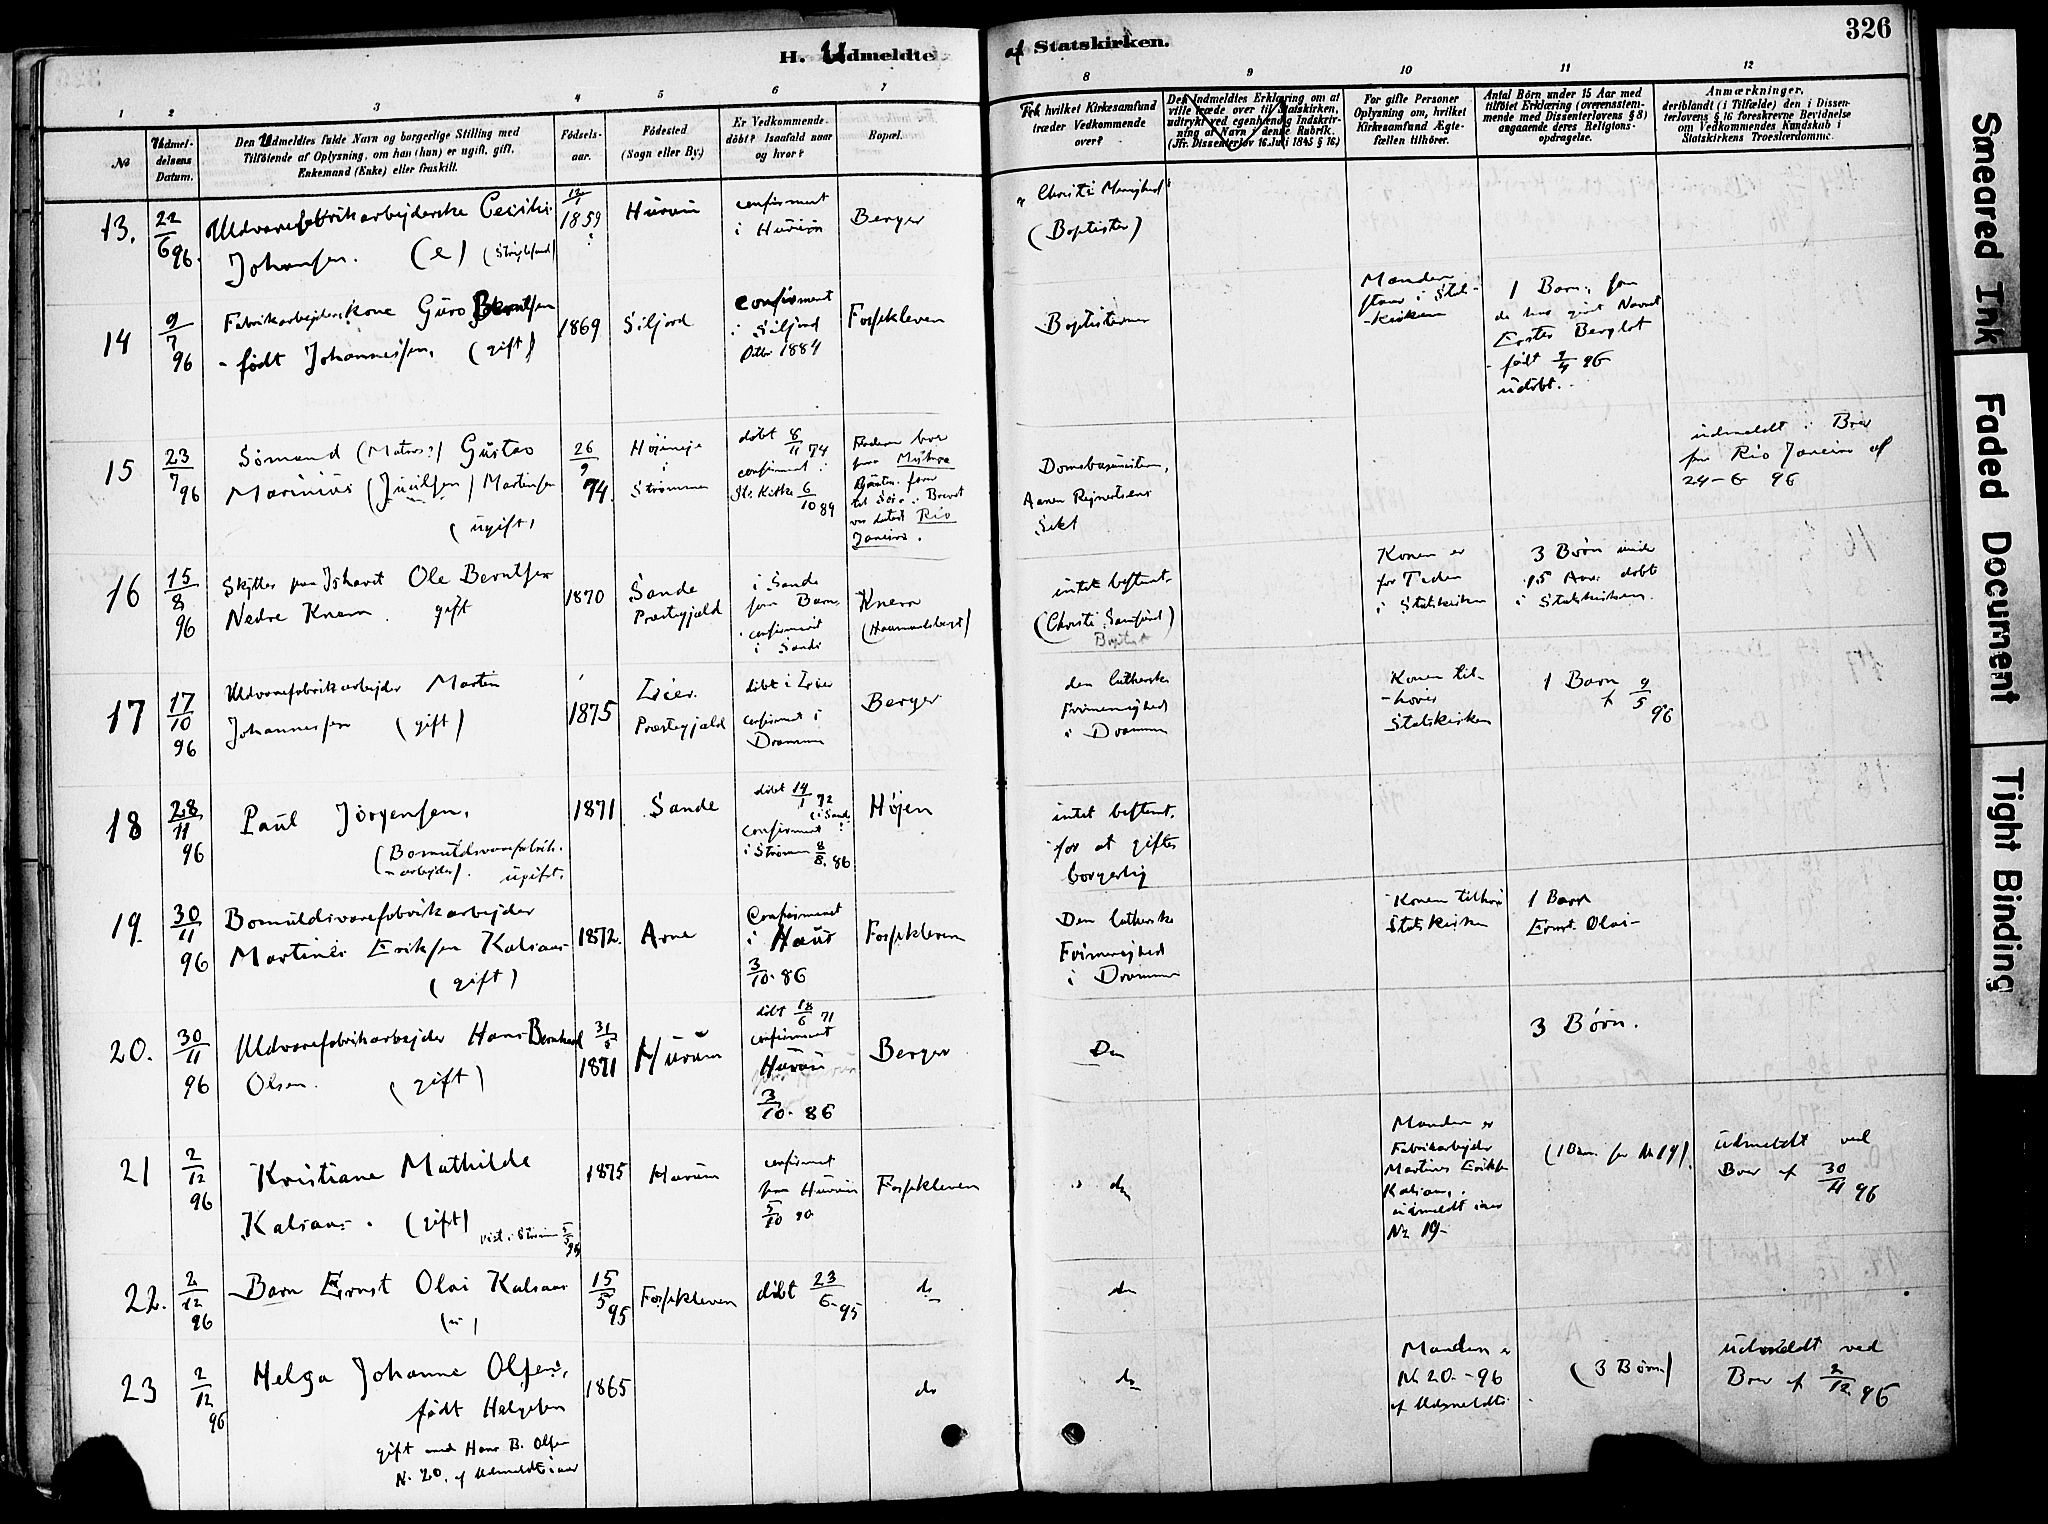 326
H. Udmeldte af Statskirken.
1 2 3 4 5 6 7 8 9 10 11 12
No
Udmeldelsens Datum.
Den Udmeldtes fulde Navn og borgerlige Stilling med
Tilföiende af Oplysning, om han (hun) er ugift, gift,
Enkemand (Enke) eller fraskilt.
Födselsaar.
Födested
(Sogn eller By.)
Er Vedkommende
döbt? Isaafald naar
og hvor?
Bopæl.
hvilket Kirkesamfund
træder Vedkommende
over?
Den Indmeldtes Erklæring om at
ville træde over til Statskirken,
udtrykt ved egenhændig Indskrivning
af Navn i denne Rubrik.
(Jfr. Dissenterlov 16 Juli 1845 § 16)
For gifte Personer
Oplysning om, hvilket
Kirkesamfund Ægtefællen
tilhörer.
Antal Börn under 15 Aar med
tilföiet Erklæring (overensstemmende
med Dissenterlovens § 8)
angaaende deres Religionsopdragelse.
Anmærkninger,
deriblandt (i Tilfælde) den i Dissenterlovens
§ 16 foreskrevne Bevidnelse
om Vedkommendes Kundskab i
Statskirkens Troeslærdomme.
13. 22/6 96. Uldvarefabrikarbejderske Cecilie
Johansen. (e)
1859
Hurum
confirmert
i Hurum
Berger
"Christi Menighed"
(Baptister)
14 9/7 96
Fabrikarbejderskone Guro Berntsen
- født Johannessen. (gift)
1869
Siljord
confirmert
i Siljord
Octbr 1884
Fosskleven
Baptisterne
Manden
staar i Stats-
-kirken
1 Barn, som
de har givet Navnet
Ester Bergljot
- født 2/4 96
udøbt.
15 23/7 96
Sømand (Matros?) Gustav
Marinius (Juulsen) Martinsen
(ugift)
26/9 74.
i
Strømmen
døbt 8/11 74
confirmert i
Str. Kirke 6/10 89
Rio
Janeiro.
Aanen Rejnertsens
Sekt
udmeldt i Brev
fra Rio Janeiro af
24-6 96
16 15/8 96
Ole Berntsen
Nedre Knem gift
1870
Sande
Præstegjæld
i Sande
som Barn,
confirmert
i Sande
Knem
intet bestemt.
(Christi Samfund)
Baptist
Konen er
for Tiden
i Statskirken
3 Børn under
15 Aar. døbt
i Statskirken.
17 17/10 96
Uldvarefabrikarbejder Martin
Johannessen (gift)
1875
Lier
Præstegjæld
døbt i Lier
confirmert i
Drammen
Berger
den lutherske
Frimenighed
i Drammen
Konen til-
-hører
Statskirken
1 Barn
f 9/5 96
18 28/11 96
Paul Jörgensen,
(Bomuldsvarefabrik-
-arbejder). ugift.
1871
Sande
døbt 14/1 72
i Sande
confirmert
i Strømmen 8/8. 86
Højen
intet bestemt.
for at giftes
borgerlig
19. 30/11 96
Bomuldsvarefabrikarbejder
Martinus Eriksen Kalsaas
(gift)
1872.
Arne
Confirmeret
i Haus
3/10. 86
Fosskleven
Den lutherske
Frimenighed
i Drammen
Konen tilhører
Statskirken
1 Barn
Ernst Olai-
20. 30/11 96
Uldvarefabrikarbejder Hans Bernhard
Olsen. (gift)
1871
Hurum
døbt 18/6 71
confirmert
Hurum
3/10. 86
Berger
Do
3 Børn.
21 2/12 96
Kristiane Mathilde
Kalsaas. (gift)
1875
Hurum
confirmert
fra Hurum
5/10 90
Fosskleven
do
Manden er
Fabrikarbejder
Martinus Eriksen
Kalsaas,
udmeldt
No 19-
(1 Barn for No 19).
udmeldt ved
Brev af 30/11 96
22. 2/12 96
Barn Ernst Olai Kalsaas
15/5 95
Fosskleven
døbt 23/6. 95
do
do
23 2/12 96
Helga Johanne Olsen,
født Helgesen
gift med Hans B. Olsen
No 20. af Udmeldte i aar
1865
do
do
Manden er
No 20 - 96
af Udmeldte
(3 Børn)
udmeldt ved
Brev af 2/12 96
Smeared Ink
Faded Document
Tight Binding